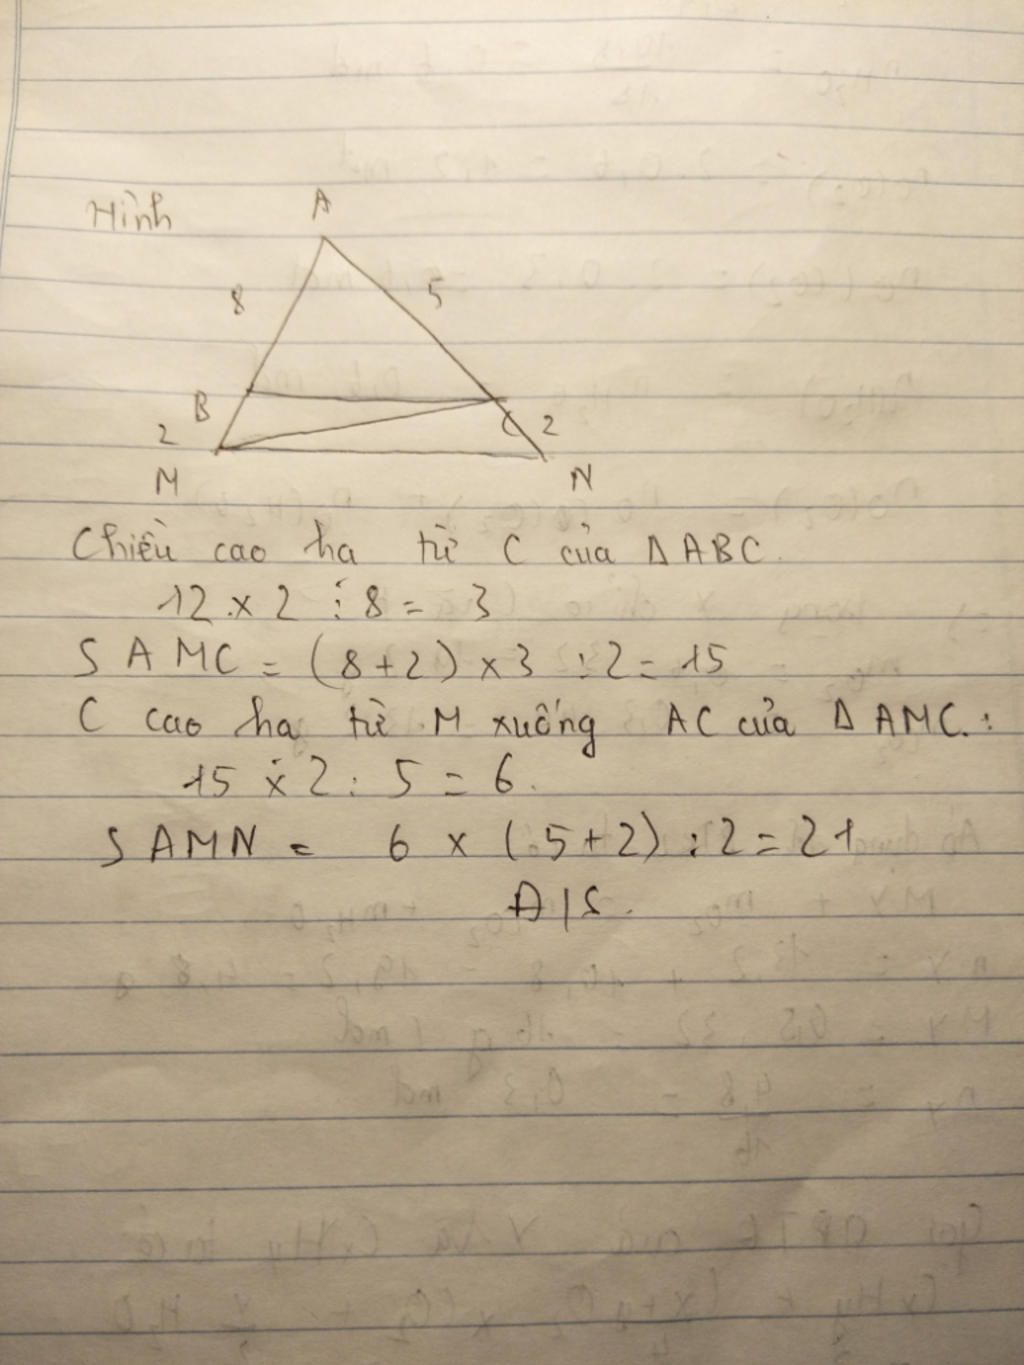 Hình
A
8 5
B
C 2
2
M N
Chiều cao hạ từ C của ΔABC.
12 x 2 : 8 = 3
S AMC = (8+2) x 3 : 2 = 15
C cao hạ từ M xuống AC của Δ AMC. :
15 x 2 : 5 = 6.
S AMN = 6 x (5+2) : 2 = 21
Đ|S.